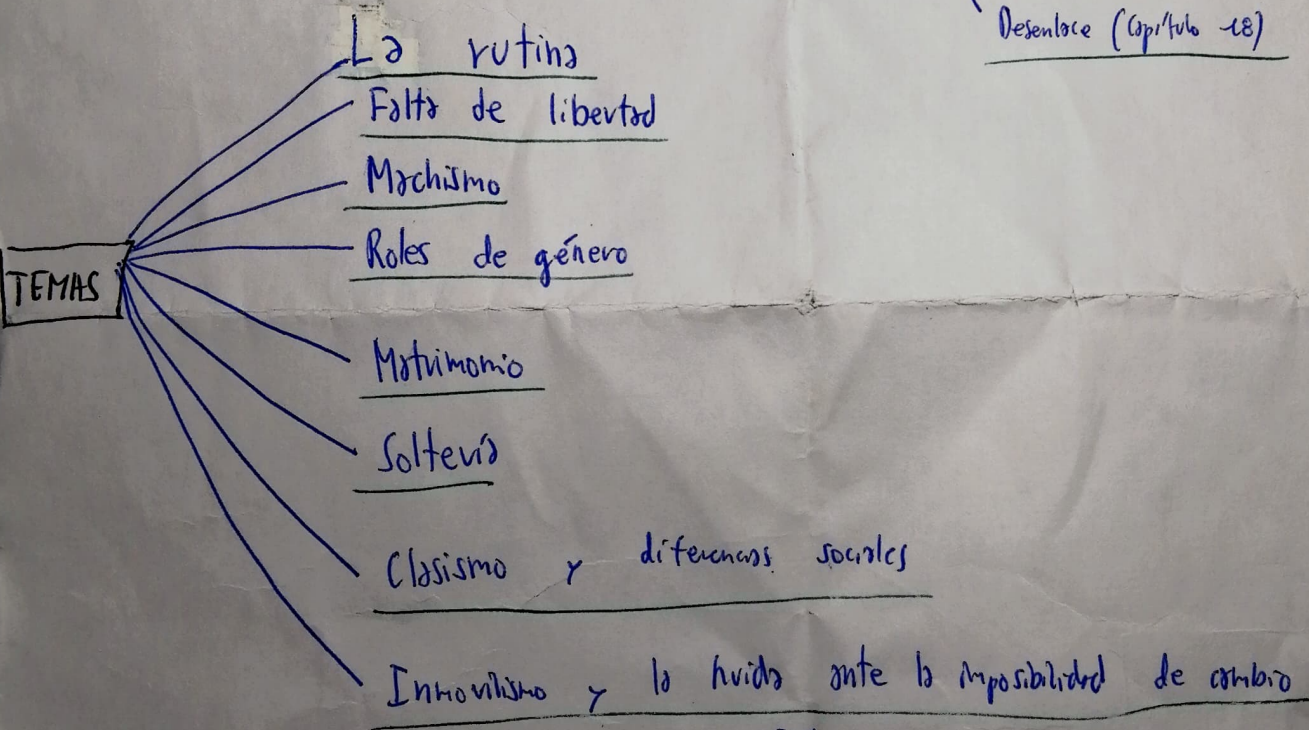 Desenlace (Capítulo 18)
La rutina
Falta de libertad
Machismo
Roles de género
TEMAS
Matrimonio
Soltería
Clasismo y diferencias sociales
Inmovilismo y la huida ante la imposibilidad de cambio